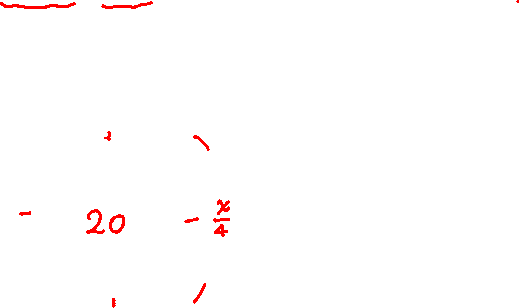 - 20 - x/4